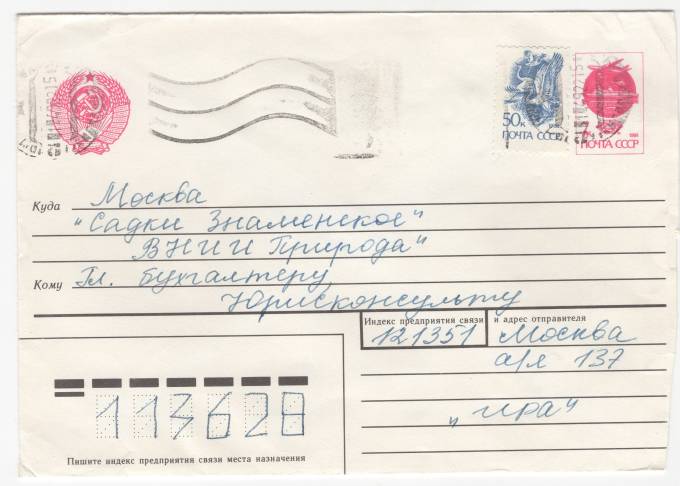 50к
ПОЧТА СССР
ПОЧТА СССР
Куда Москва
"Садки Знаменское"
ВНИИ Природа"
Кому Гл. бухгалтеру
Юрисконсульту
Индекс предприятия связи и адрес отправителя
121351 Москва
а/я 137
"Ира"
113628
Пишите индекс предприятия связи места назначения